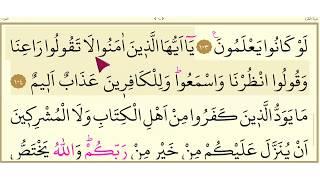 لَوْ كَانُوا يَعْلَمُونَ ۟ ١٠٣ يَآ اَيُّهَا الَّذ۪ينَ اٰمَنُوا لَا تَقُولُوا رَاعِنَا
وَقُولُوا انْظُرْنَا وَاسْمَعُواؕ وَلِلْكَافِر۪ينَ عَذَابٌ اَل۪يمٌ ١٠٤
مَا يَوَدُّ الَّذ۪ينَ كَفَرُوا مِنْ اَهْلِ الْكِتَابِ وَلَا الْمُشْرِك۪ينَ
اَنْ يُنَزَّلَ عَلَيْكُمْ مِنْ خَيْرٍ مِنْ رَبِّكُمْؕ وَاللّٰهُ يَخْتَصُّ